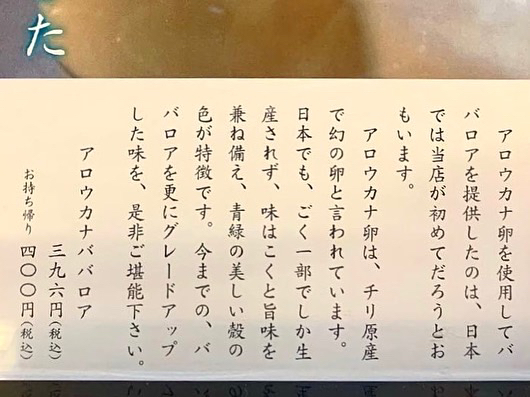 た
アロウカナ卵を使用してバ
バロアを提供したのは、日本
では当店が初めてだろうとお
もいます。
アロウカナ卵は、チリ原産
で幻の卵と言われています。
日本でも、ごく一部でしか生
産されず、味はこくと旨味を
兼ね備え、青緑の美しい殻の
色が特徴です。今までの、バ
バロアを更にグレードアップ
した味を、是非ご堪能下さい。
アロウカナババロア
三九六円(税込)
お持ち帰り 四〇〇円(税込)